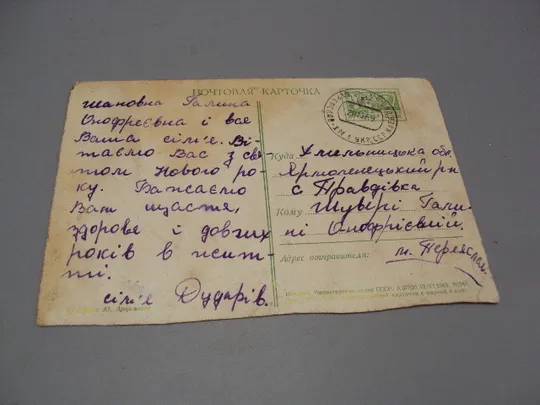 ПОЧТОВАЯ КАРТОЧКА
Шановна Галина
Онофреєвна і вся
Ваша сім'є. Ві-
таємо Вас з св-
том Нового ро-
ку. Бажаємо
Вам щастя,
здоровє і довгих
років в жит-
ті.
сім'є Дударів.
Куда Хмельницька обл.
Ярмолинецький рн
с Правдівка
Кому Шувірі Гали-
ні Онофріївній.
Адрес отправителя: м. Переяслав